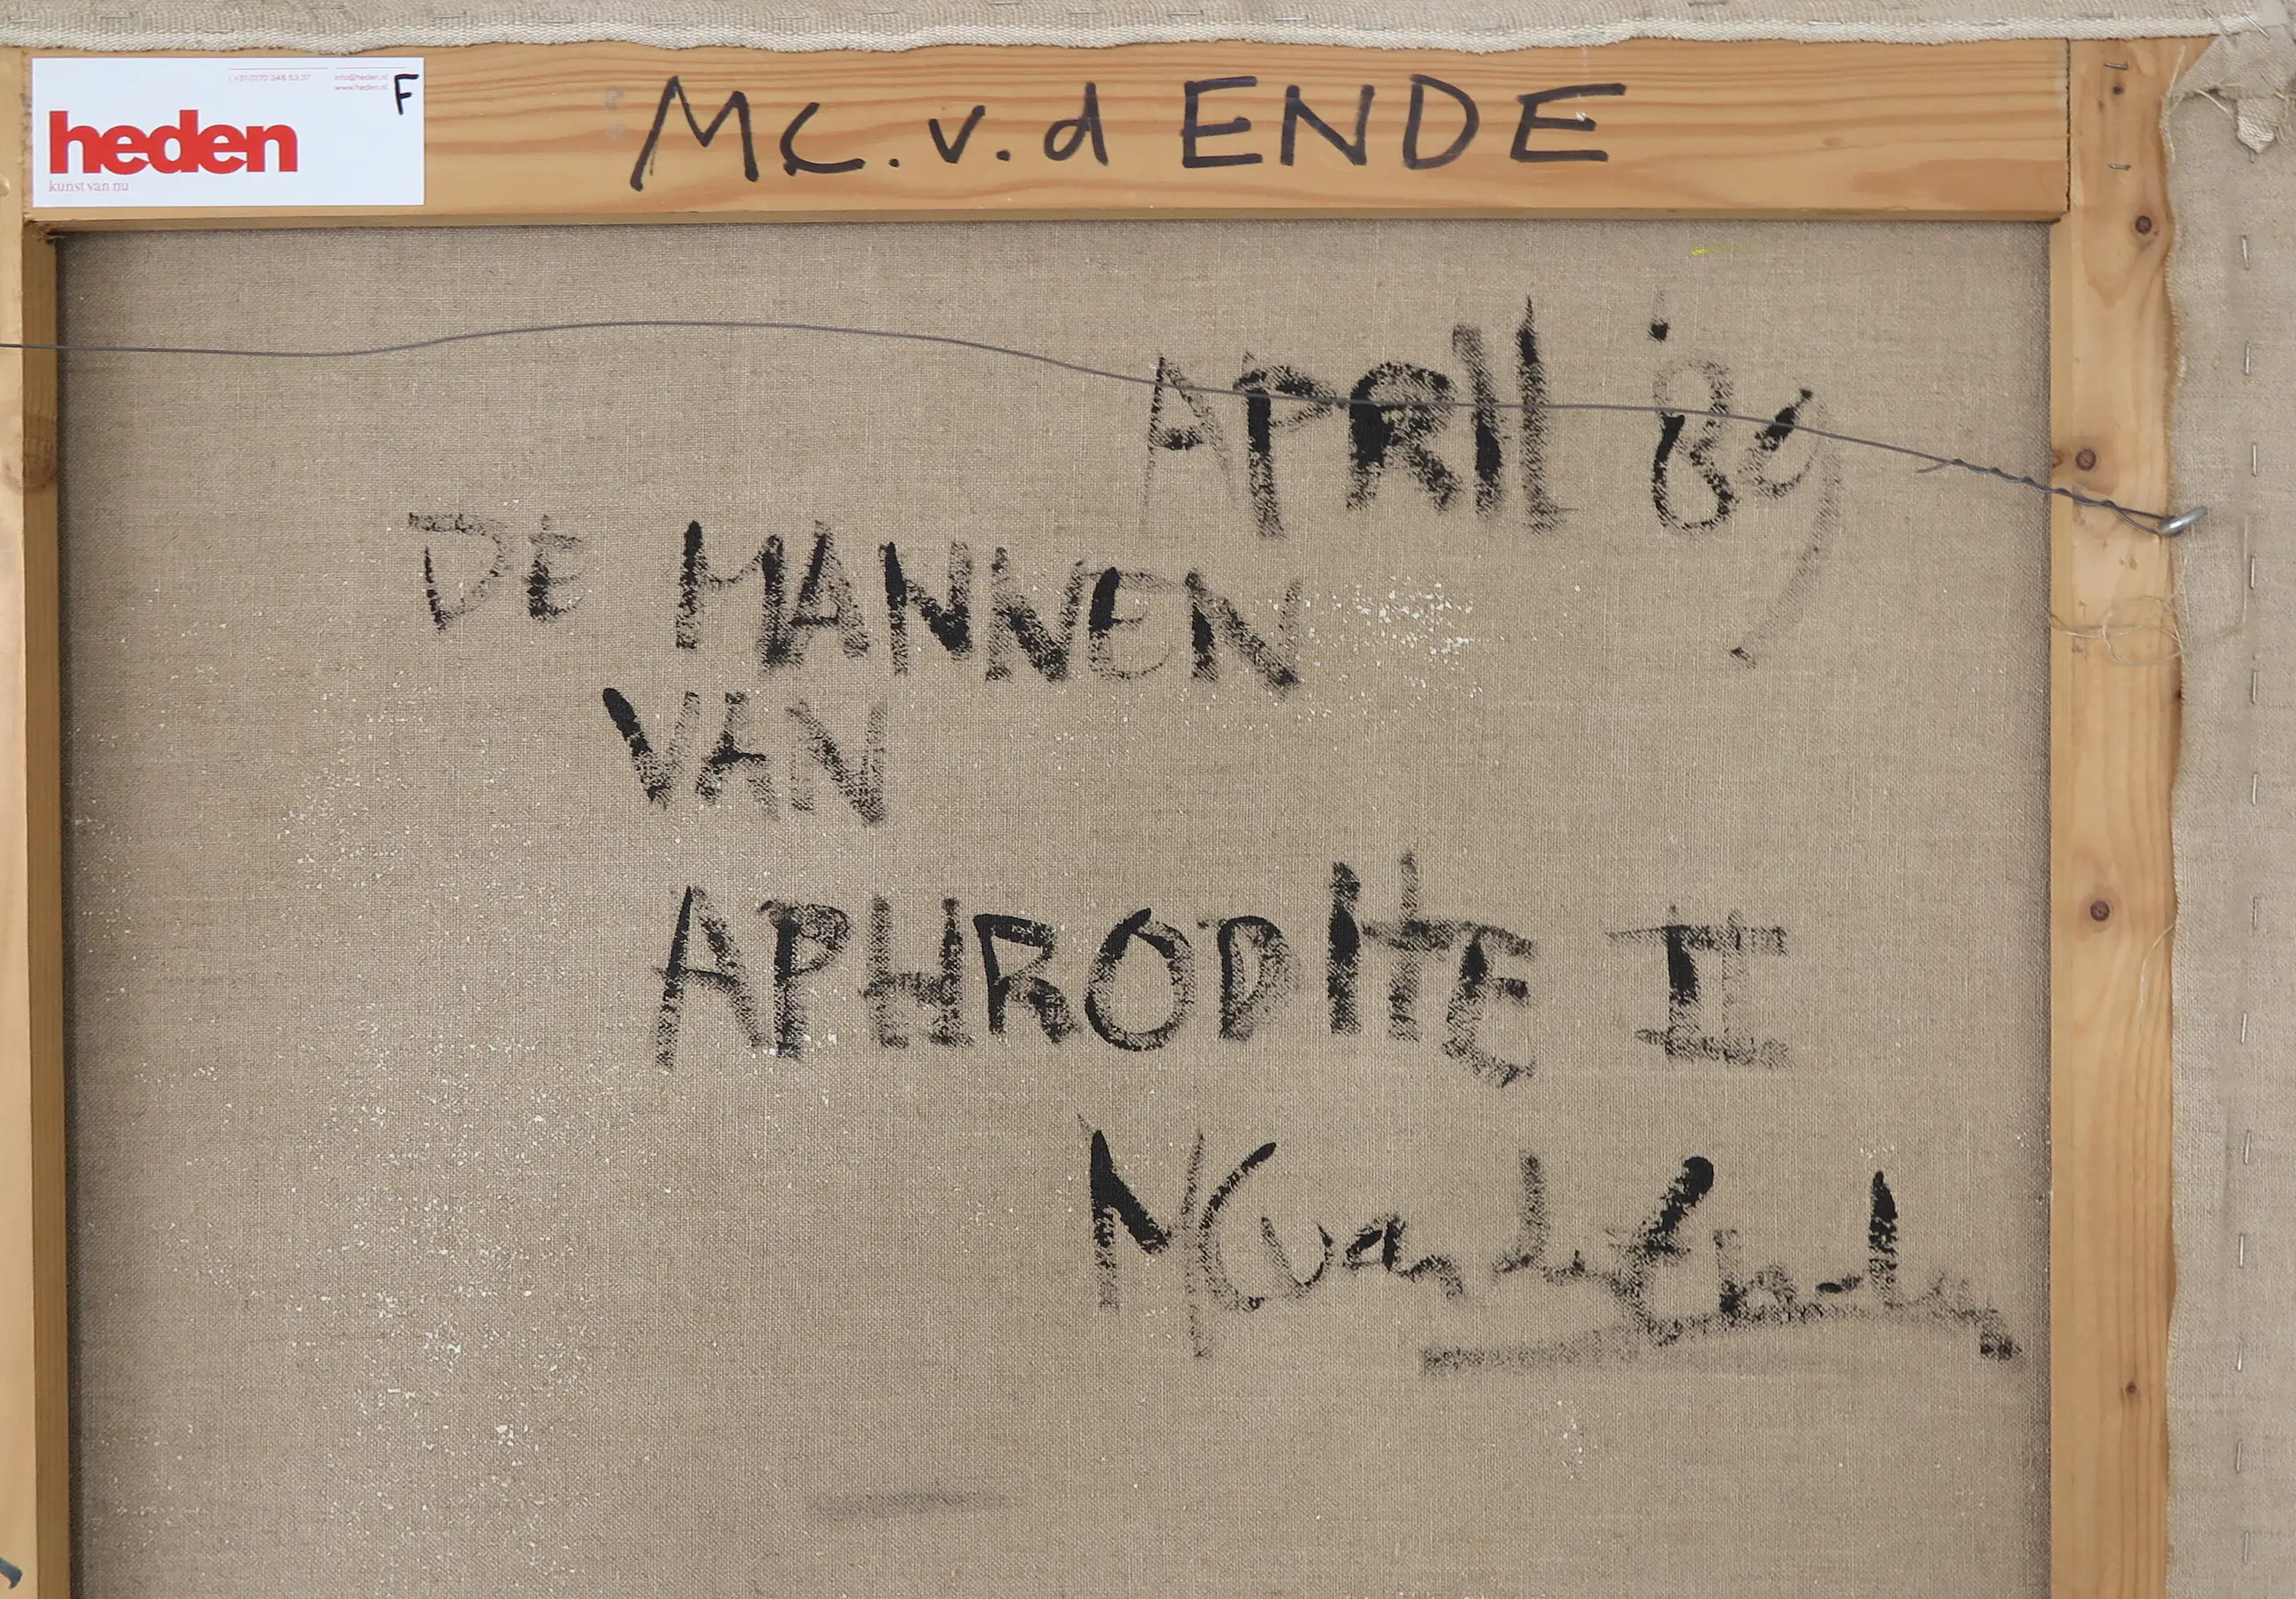 t +31(0)70 346 53 37 info@heden.nl
www.heden.nl
F
heden
kunst van nu
MC.v.d ENDE
APRIL '89
DE MANNEN
VAN
APHRODITE II
MC van den Ende